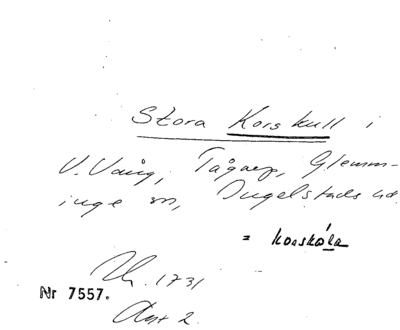 Stora Korskull i
V. Vång, Tågarp, Glemm-
inge sn, Ingelstads hd.
= Korskåla
Uh. 1731
Nr 7557.
Akt 2.